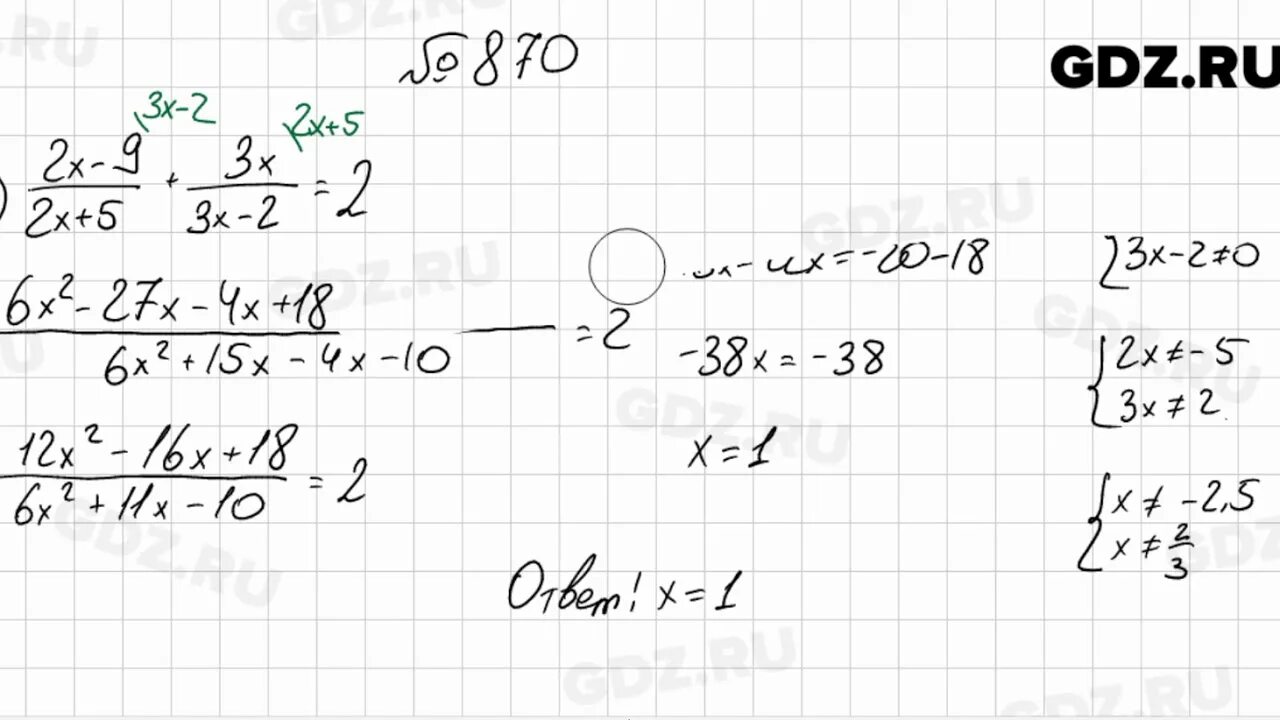 №870
GDZ.RU
3x-2 2x+5
) 2x-9/2x+5 + 3x/3x-2 = 2
6x²-27x-4x+18/6x²+15x-4x-10 = 2
12x²-16x+18/6x²+11x-10 = 2
x=-20-18
-38x=-38
x=1
Ответ! x=1
{3x-2≠0
{2x≠-5
3x≠2
{x≠-2,5
x≠2/3
GDZ.RU
GDZ.RU
GDZ.RU
GDZ.RU
GDZ.RU
GDZ.RU
GDZ.RU